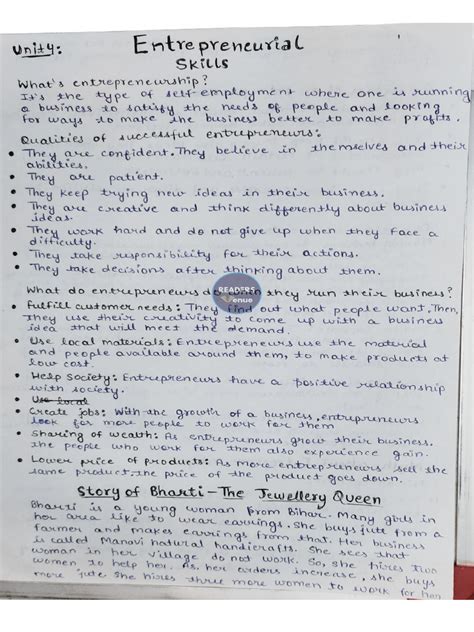 Unit4: Entrepreneurial
Skills
What's entrepreneurship?
It's the type of self-employment where one is running
a business to satisfy the needs of people and looking
for ways to make the business better to make profits.
Qualities of successful entrepreneurs:
• They are confident. They believe in themselves and their
abilities.
• They are patient.
• They keep trying new ideas in their business.
• They are creative and think differently about business
ideas.
• They work hard and do not give up when they face a
difficulty.
• They take responsibility for their actions.
• They take decisions after thinking about them.
What do entrepreneurs do when they run their business?
READERS
Venue
• Fulfill customer needs: They find out what people want. Then,
They use their creativity to come up with a business
idea that will meet the demand.
• Use local materials: Entrepreneurs use the material
and people available around them, to make products at
low cost.
• Help society: Entrepreneurs have a positive relationship
with society.
• Use local
• Create jobs: With the growth of a business, entrepreneurs
look for more people to work for them
• Sharing of wealth: As entrepreneurs grow their business.
the people who work for them also experience gain.
• Lower price of products: As more entrepreneurs sell the
same product, the price of the product goes down.
Story of Bharti-The Jewellery Queen
Bharti is a young woman from Bihar. Many girls in
her area like to wear earrings. She buys jute from a
farmer and makes earrings from that. Her business
is called Manavi natural handicrafts. She sees that
woman in her village do not work. So, she hires two
women, to help her. As her orders increase, she buys
more jute she hires three more women to work for her